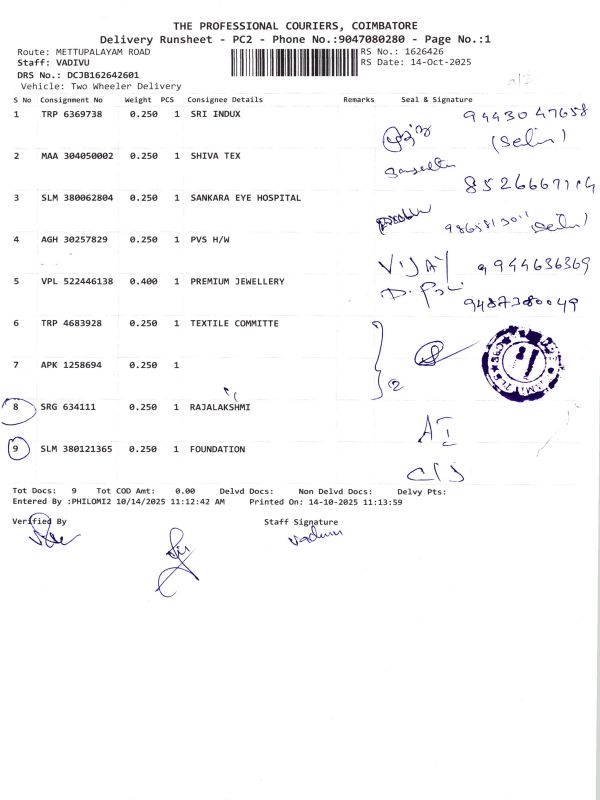 THE PROFESSIONAL COURIERS, COIMBATORE
Delivery Runsheet - PC2 - Phone No.:9047080280 - Page No.:1
Route: METTUPALAYAM ROAD RS No.: 1626426
Staff: VADIVU RS Date: 14-Oct-2025
DRS No.: DCJB162642601
Vehicle: Two Wheeler Delivery
S No Consignment No Weight PCS Consignee Details Remarks Seal & Signature
1 TRP 6369738 0.250 1 SRI INDUX 9443047658
(Selin)
2 MAA 304050002 0.250 1 SHIVA TEX
8526667114
3 SLM 380062804 0.250 1 SANKARA EYE HOSPITAL
9865813011 (Selin)
4 AGH 30257829 0.250 1 PVS H/W
VIJAY 9944636369
5 VPL 522446138 0.400 1 PREMIUM JEWELLERY
9487380049
6 TRP 4683928 0.250 1 TEXTILE COMMITTE
7 APK 1258694 0.250 1
2
8 SRG 634111 0.250 1 RAJALAKSHMI
AI
9 SLM 380121365 0.250 1 FOUNDATION
C/S
Tot Docs: 9 Tot COD Amt: 0.00 Delvd Docs: Non Delvd Docs: Delvy Pts:
Entered By :PHILOMI2 10/14/2025 11:12:42 AM Printed On: 14-10-2025 11:13:59
Verified By Staff Signature
Vadivu